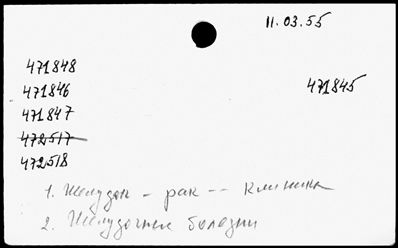 11.03.55
471848
471846
471845
471847
472517
472518
1. Желудок - рак -- клиника
2. Желудочные болезни